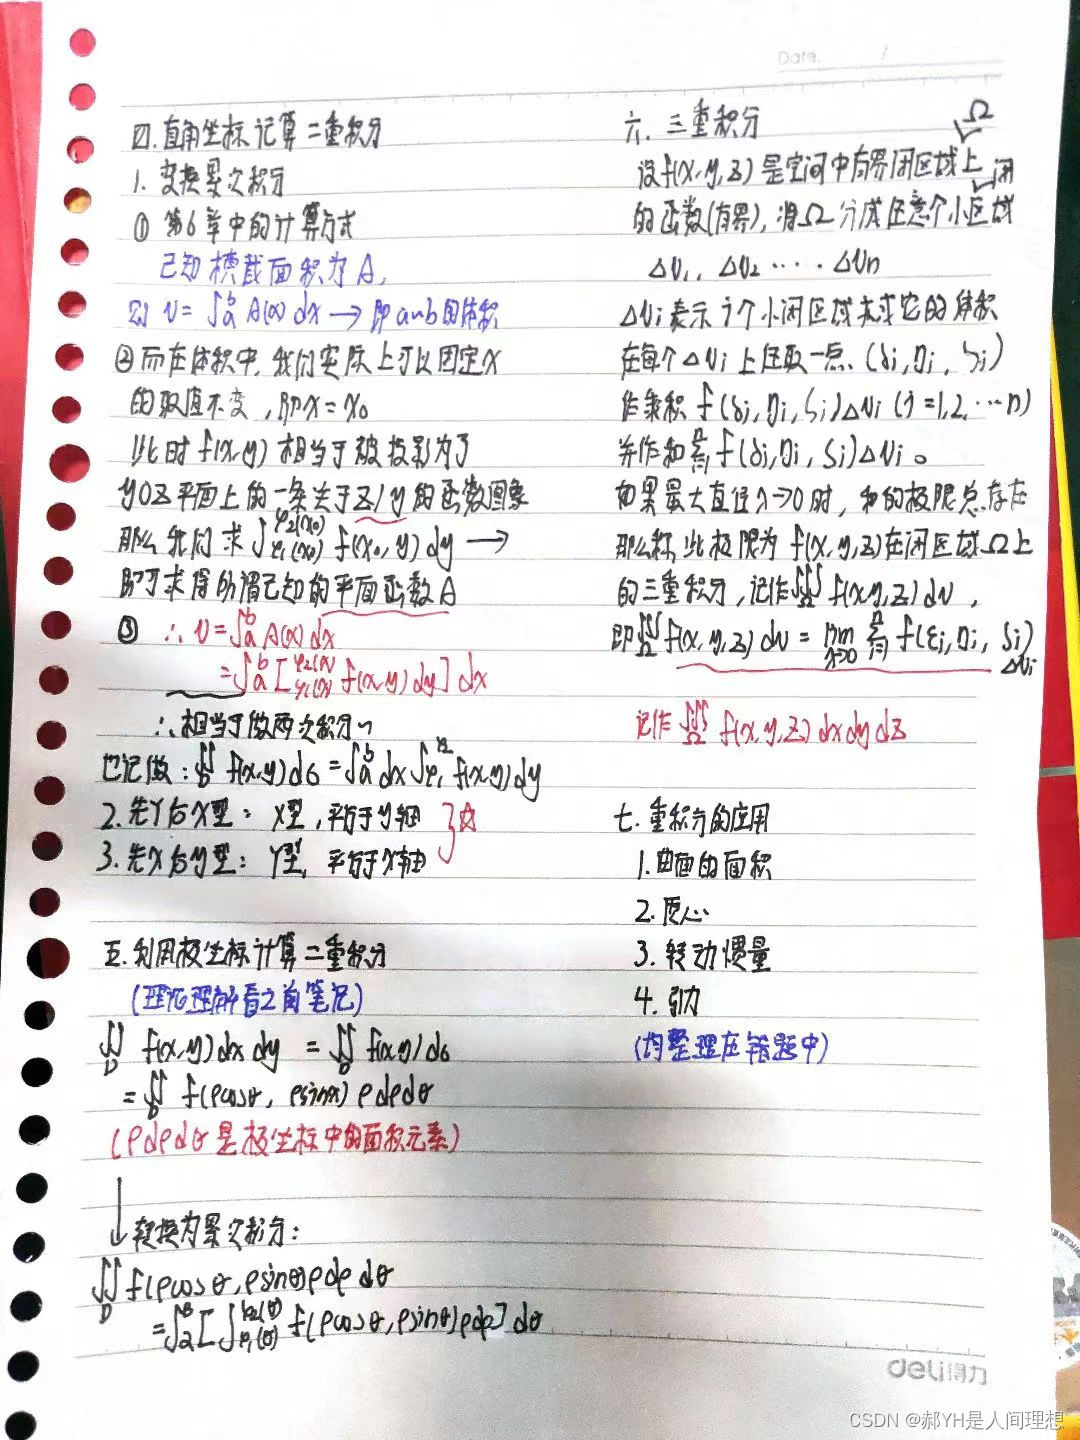 Date. /
四.直角坐标记算二重积分
1. 变换累次积分
① 第6章中的计算方式
已知横截面积为A,
则 V=∫ₐᵇ A(x) dx → 即a~b的体积
②而在体积中,我们实际上可以固定x
的取值不变,即x=x₀
此时f(x,y)相当于被投影为了
yOz平面上的一条关于z/y的函数图象
那么我们求∫_{φ₁(x₀)}^{φ₂(x₀)} f(x₀,y)dy →
即可求得所谓已知的平面函数A
③ ∴V=∫ₐᵇ A(x)dx
=∫ₐᵇ[∫_{φ₁(x)}^{φ₂(x)} f(x,y)dy]dx
∴相当于做两次积分~
也记做:∬_D f(x,y)dσ=∫ₐᵇ dx∫_{φ₁}^{φ₂} f(x,y)dy
2.先Y后X型: X型,平行于y轴 }☆
3.先X后y型: Y型,平行于x轴
五.利用极坐标计算二重积分
(理论理解看之前笔记)
∬_D f(x,y)dxdy = ∬_D f(x,y)dσ
=∬_D f(ρcosθ, ρsinx)ρdρdθ
(ρdρdθ是极坐标中的面积元素)
↓转换为累次积分:
∬_D f(ρcosθ,ρsinθ)ρdρdθ
=∫_α^β[∫_{φ₁(θ)}^{φ₂(θ)} f(ρcosθ,ρsinθ)ρdρ]dθ
六. 三重积分
设f(x,y,z)是空间中有界闭区域Ω上
的函数(有界),将Ω分成任意个小闭区域
ΔV₁, ΔV₂ ····ΔVn
ΔVi表示i个小闭区域亦求它的体积
在每个ΔVi上任取一点.(δi,ηi,ζi)
作乘积f(δi,ηi,ζi)ΔVi(i=1,2,…n)
并作和∑_{i=1}^n f(δi,ηi,ζi)ΔVi。
如果最大直径λ→0时,和的极限总存在
那么称此极限为f(x,y,z)在闭区域Ω上
的三重积分,记作∭_Ω f(x,y,z)dv,
即∭_Ω f(x,y,z)dv=lim_{λ→0} ∑_{i=1}^n f(ξi,ηi,ζi)ΔVi
记作∭_Ω f(x,y,z)dxdydz
七.重积分的应用
1.曲面的面积
2.质心
3.转动惯量
4.引力
(均整理在错题中)
deli得力
CSDN @郝YH是人间理想